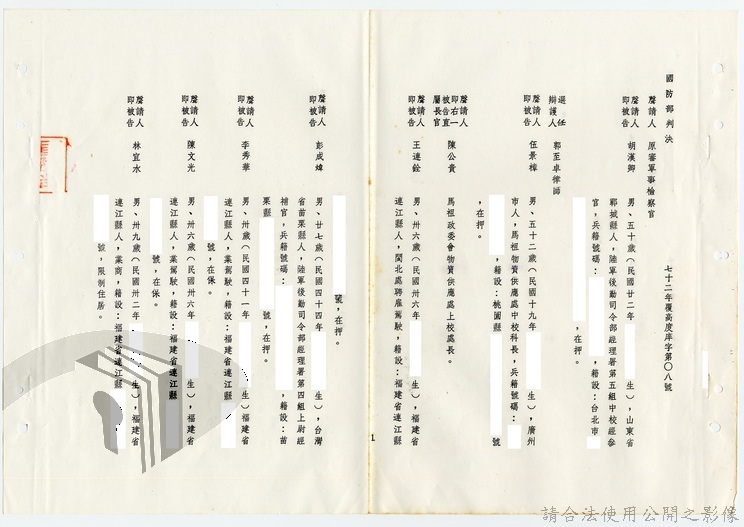 國防部判決　七十二年覆高度庠字第〇八號
聲請人　原審軍事檢察官
聲請人即被告　胡漢卿　男、五十歲（民國廿二年　生），山東省
鄆城縣人，陸軍後勤司令部經理署第五組中校經參
官，兵籍號碼：　，籍設：台北市
，在押。
選任辯護人　郭至卓律師
聲請人即被告　伍景樟　男、五十二歲（民國十九年　生），廣州
市人，馬祖物資供應處中校科長，兵籍號碼：
，籍設：桃園縣　號
，在押。
聲請人即右一被告直屬長官　陳公貴　馬祖政委會物資供應處上校處長。
聲請人即被告　王連銓　男、卅六歲（民國卅六年　生），福建省
連江縣人，閩北處聘雇駕駛，籍設：福建省連江縣
號，在押。
聲請人即被告　彭成煒　男、廿七歲（民國四十四年　生），台灣
省苗栗縣人，陸軍後勤司令部經理署第四組上尉經
補官，兵籍號碼：　，籍設：苗
栗縣　號，在押。
聲請人即被告　李秀華　男、卅歲（民國四十一年　生）福建省
連江縣人，業駕駛，籍設：福建省連江縣
號，在保。
聲請人即被告　陳文光　男、卅六歲（民國卅六年　生），福建省
連江縣人，業駕駛，籍設：福建省連江縣
號，在保。
聲請人即被告　林宜水　男、卅九歲（民國卅二年　生），福建省
連江縣人，業商，籍設：福建省連江縣
號，限制住居。
1
請合法使用公開之影像